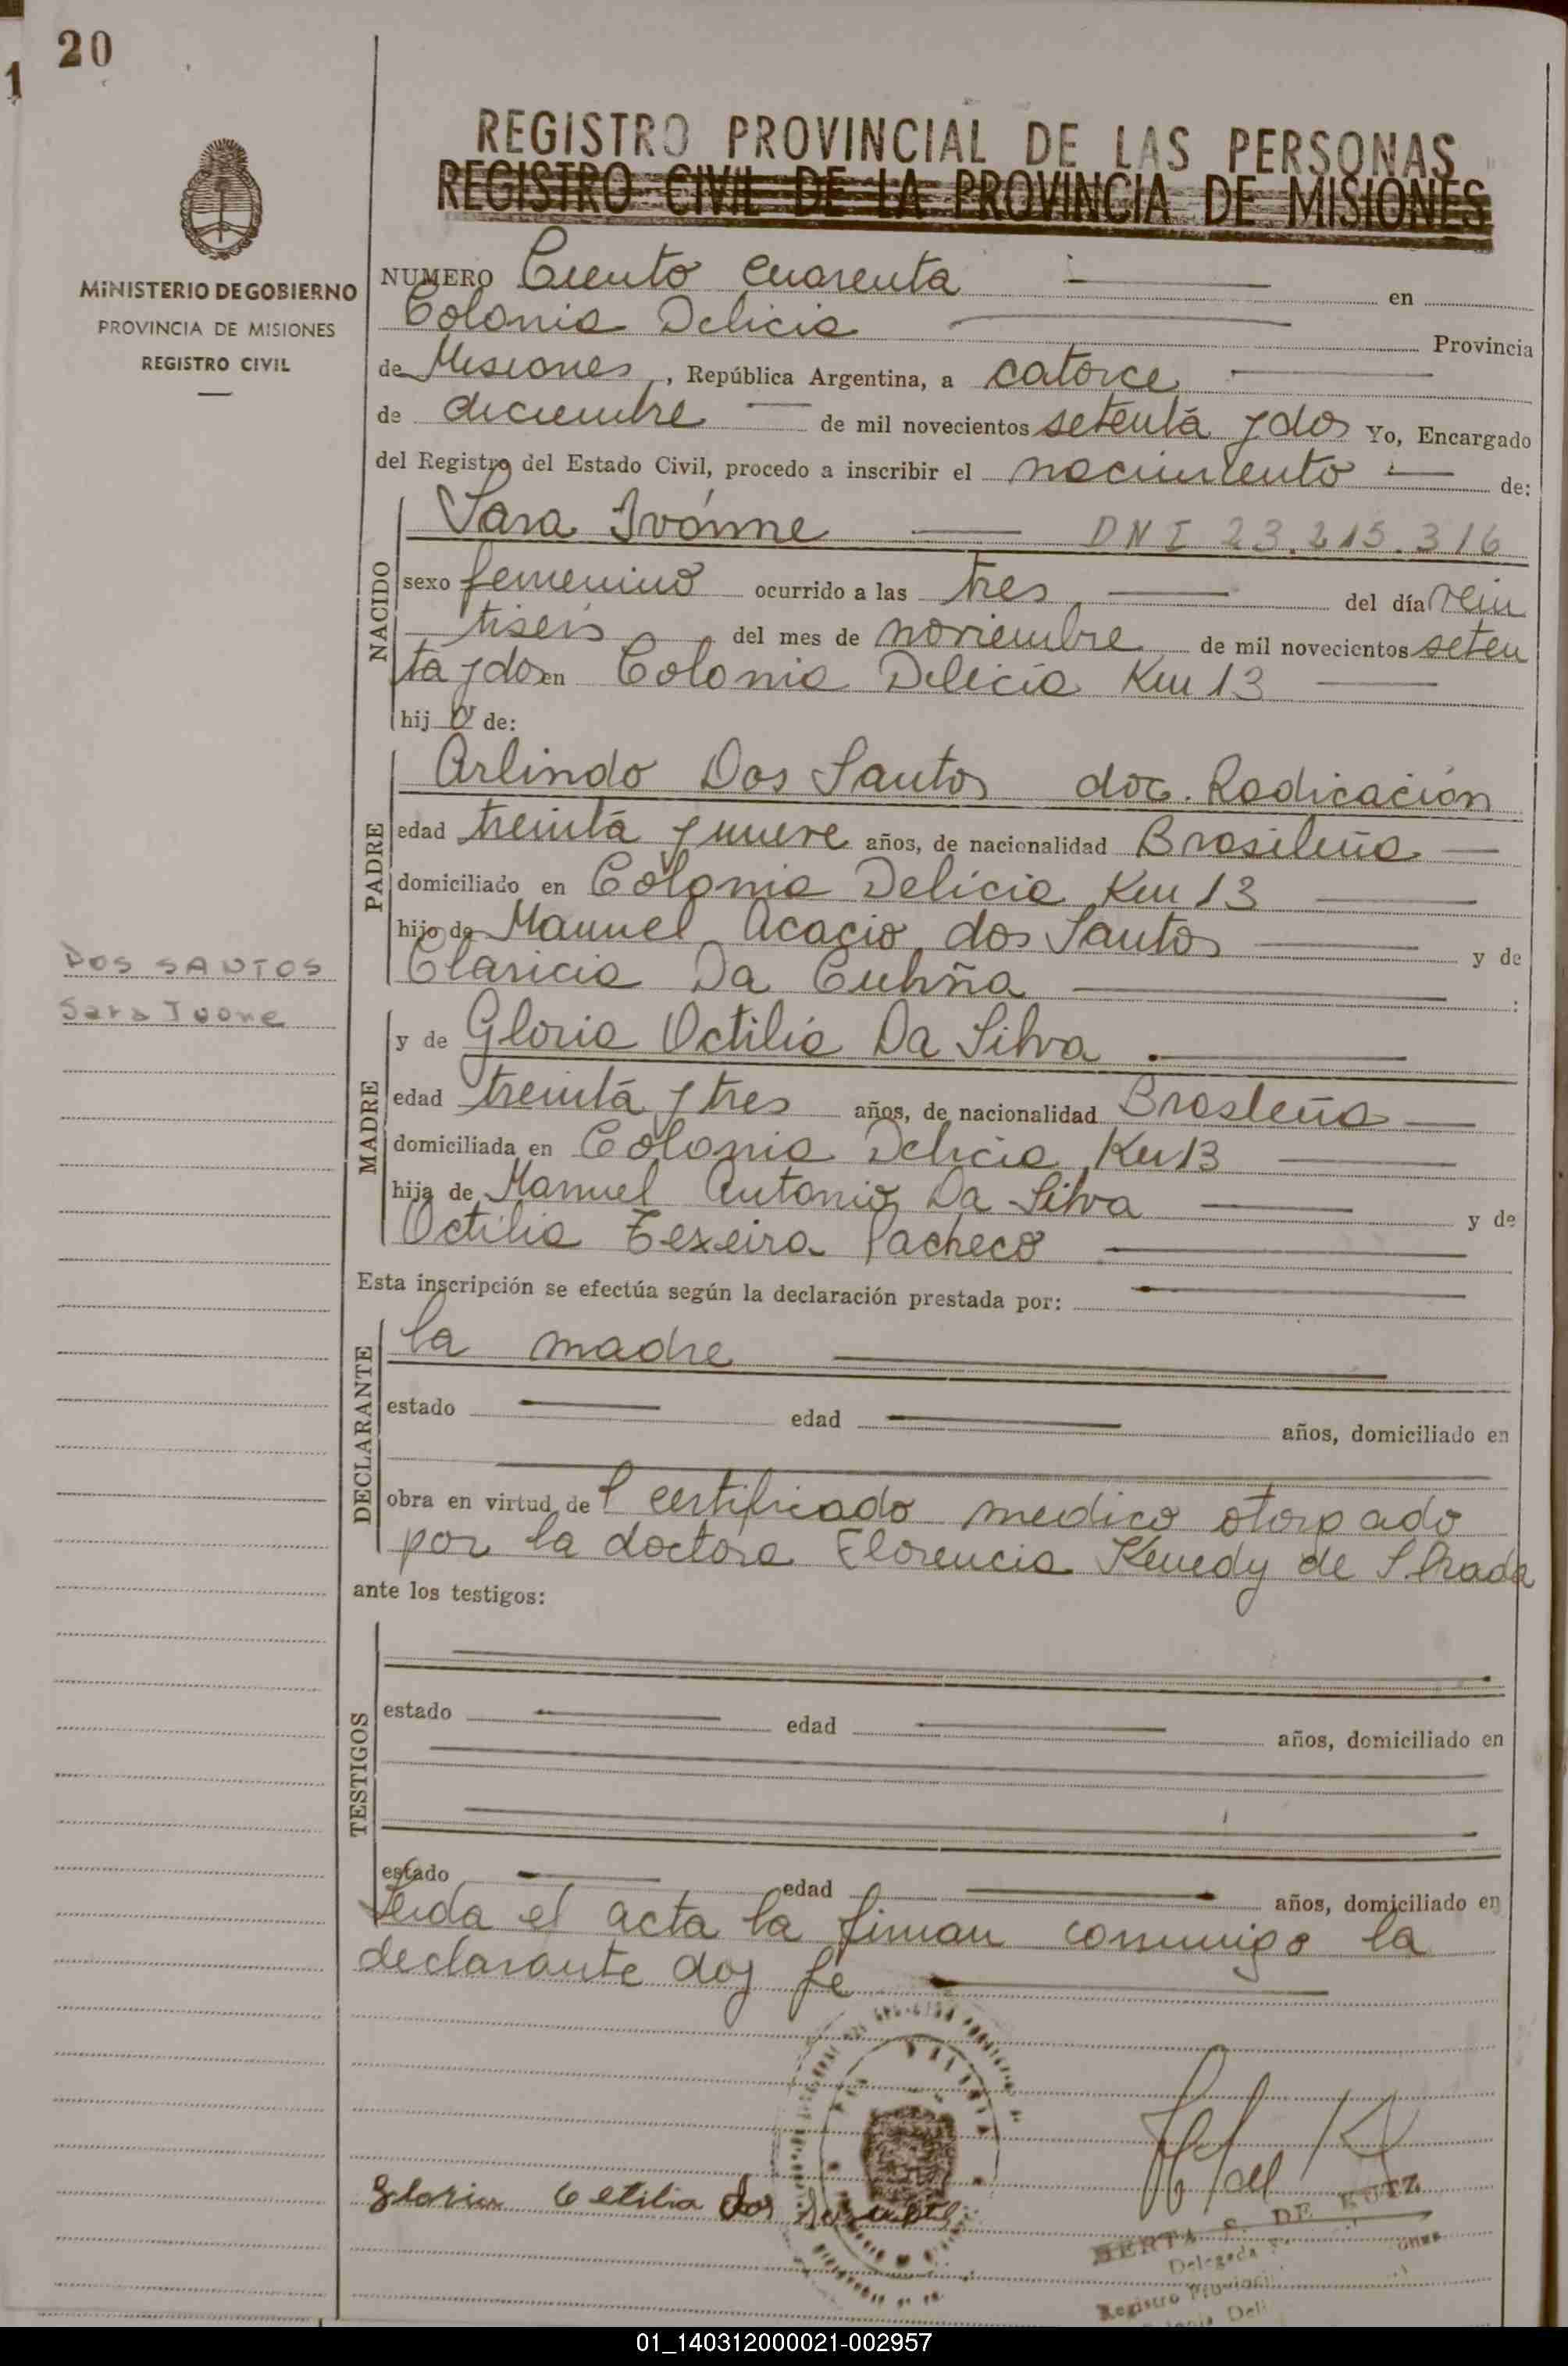 20
1
REGISTRO PROVINCIAL DE LAS PERSONAS
REGISTRO CIVIL DE LA PROVINCIA DE MISIONES
MINISTERIO DE GOBIERNO
PROVINCIA DE MISIONES
REGISTRO CIVIL
NUMERO Ciento cuarenta en
Colonia Delicia Provincia
de Misiones, República Argentina, a catorce
de diciembre de mil novecientos setenta y dos Yo, Encargado
del Registro del Estado Civil, procedo a inscribir el nacimiento de:
NACIDO
Sara Ivonne DNI 23.215.316
sexo femenino ocurrido a las tres del día vein
tiseis del mes de noviembre de mil novecientos seten
ta y dos en Colonia Delicia Km 13
hij a de:
PADRE
Arlindo Dos Santos doc. Radicación
edad treinta y nueve años, de nacionalidad Brasileña
domiciliado en Colonia Delicia Km 13
hijo de Manuel Acacio dos Santos y de
Claricia Da Cuhña :
DOS SANTOS
Sara Ivone
MADRE
y de Gloria Octilia Da Silva
edad treinta y tres años, de nacionalidad Brasleña
domiciliada en Colonia Delicia Km 13
hija de Manuel Antonio Da Silva y de
Octilia Texeira Pacheco
Esta inscripción se efectúa según la declaración prestada por:
DECLARANTE
la madre
estado edad años, domiciliado en
obra en virtud de l certificado medico otorgado
por la doctora Florencia Kenedy de Strada
ante los testigos:
TESTIGOS
estado edad años, domiciliado en
estado edad años, domiciliado en
Leida el acta la firman conmigo la
declarante doy fe
Gloria Octilia dos
HERTA DE KUTZ
Delegada
Registro
01_140312000021-002957